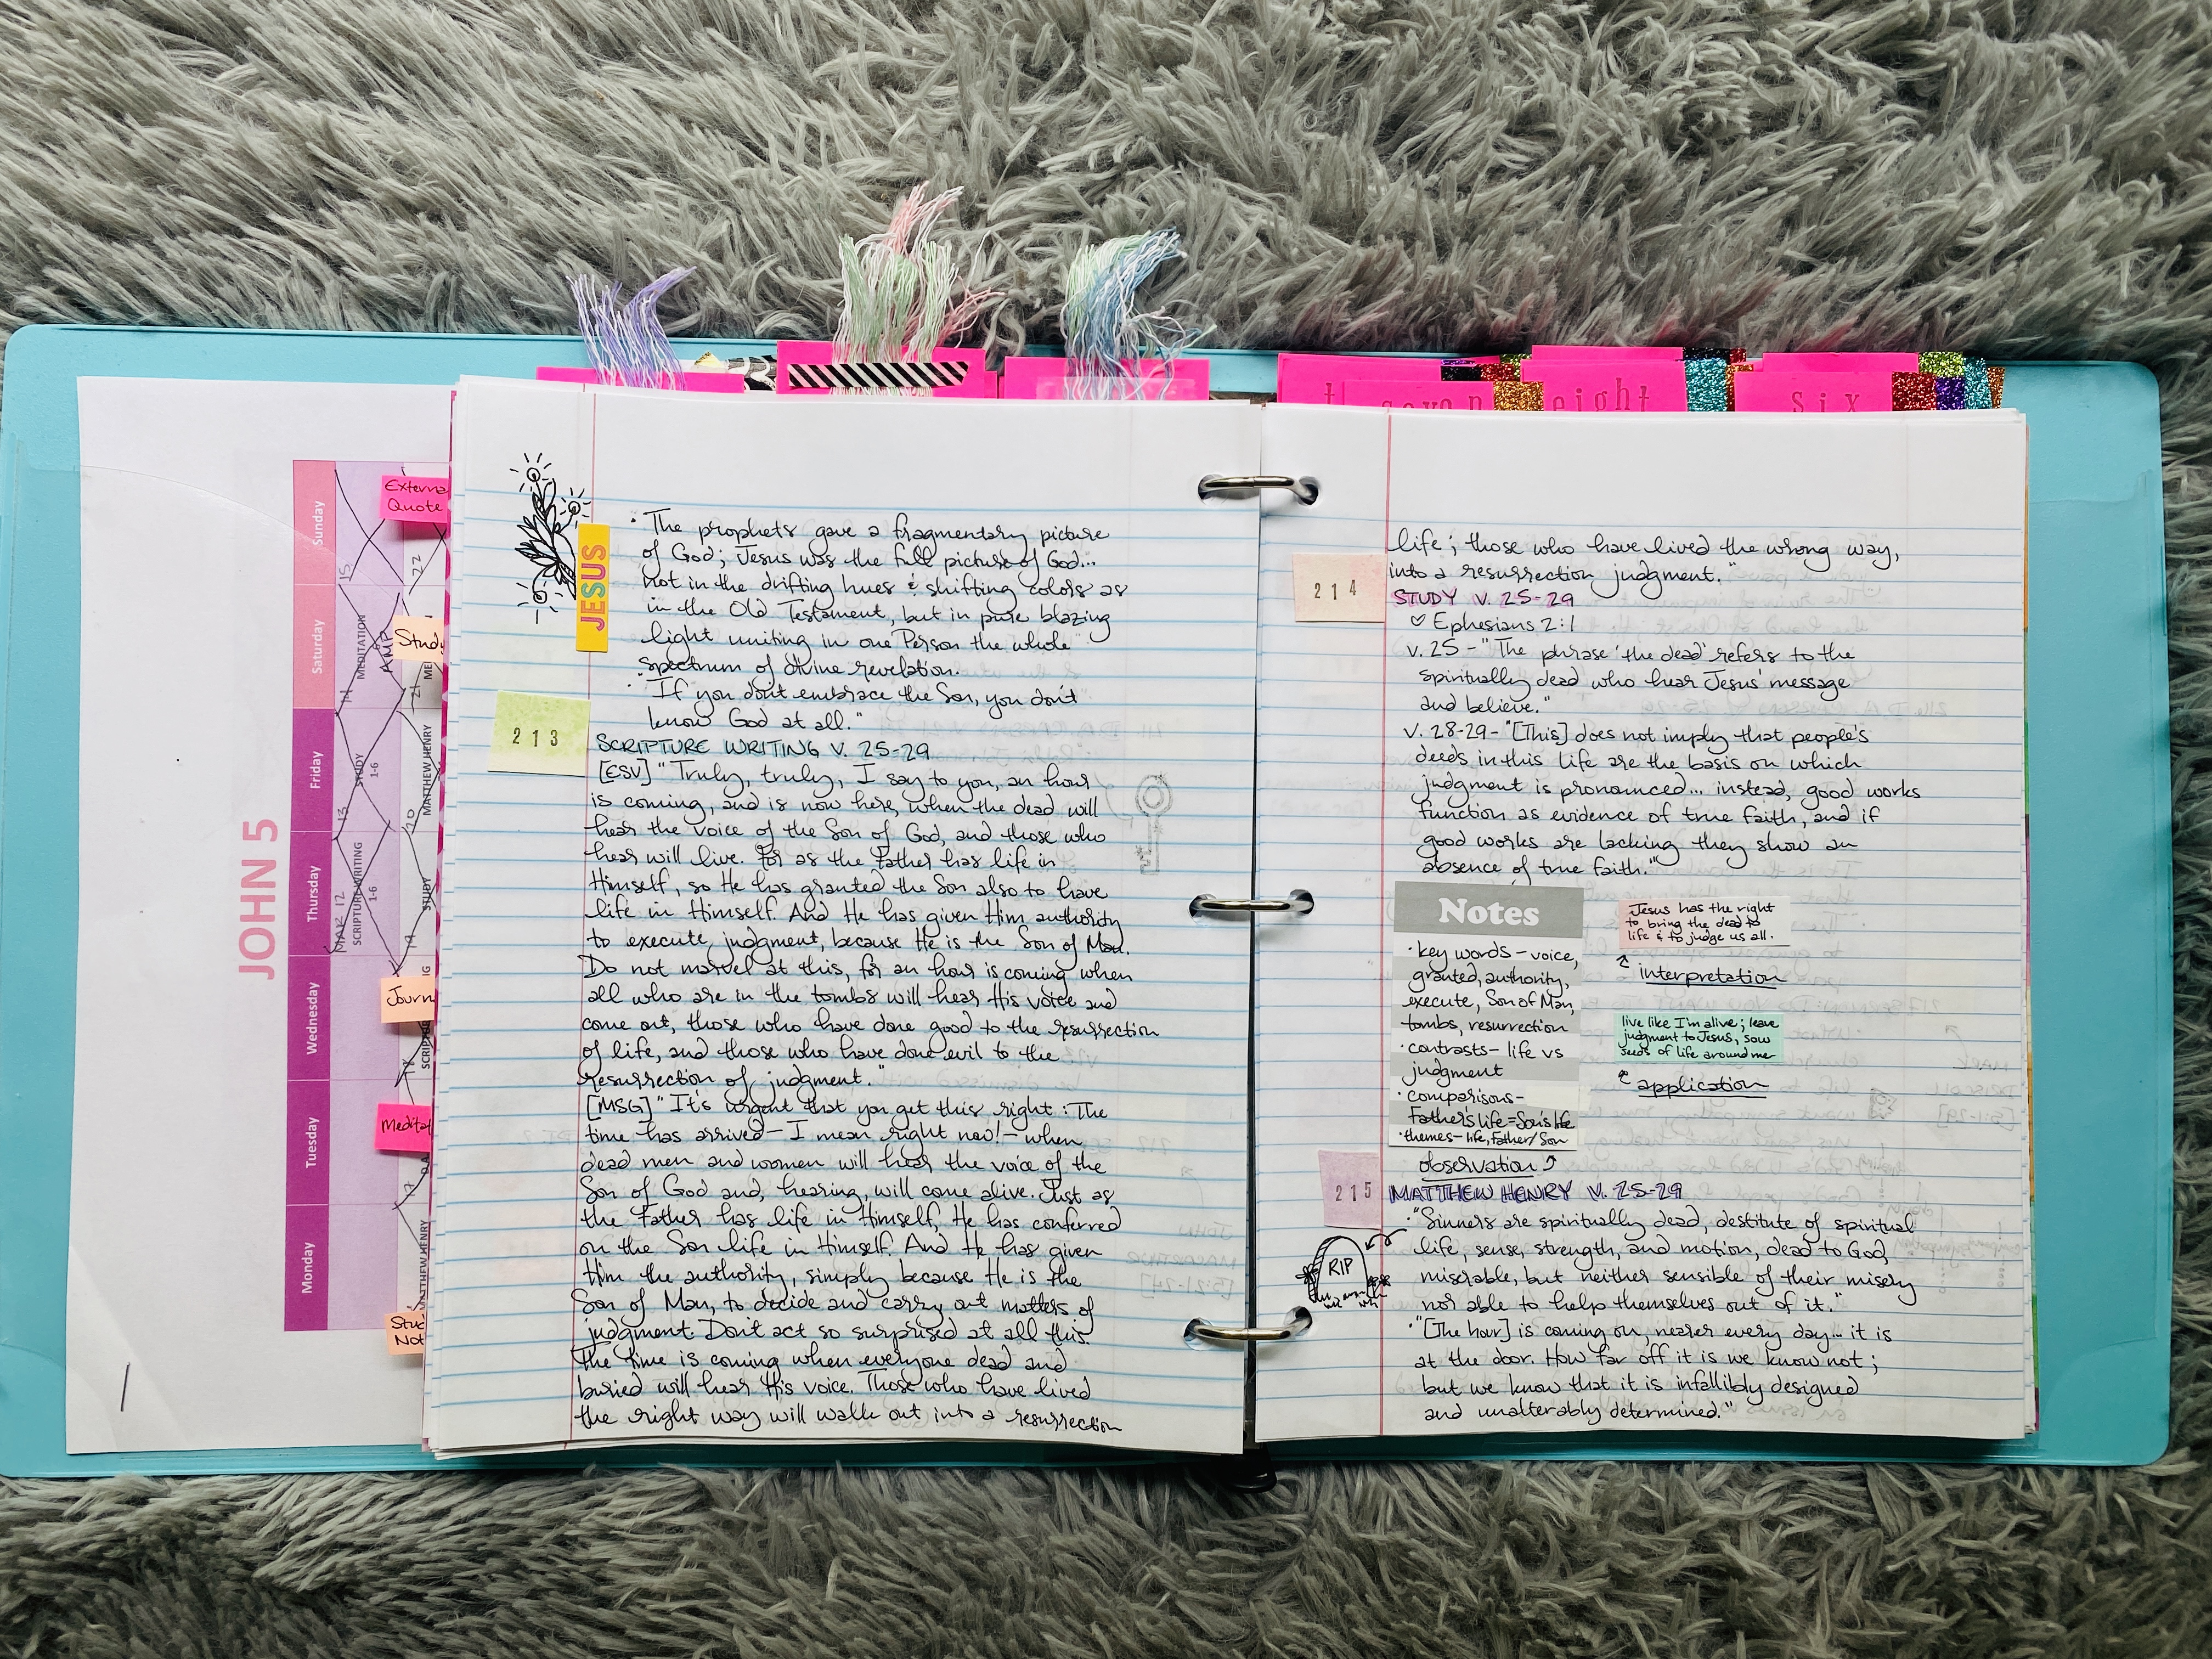 JOHN 5
Sunday
Saturday
Friday
Thursday
Wednesday
Tuesday
Monday
15
22
14
MEDITATION
AMP
21
13
STUDY
1-6
20
MATTHEW HENRY
MAY 12
SCRIPTURE WRITING
1-6
19
STUDY
18
17
MATTHEW HENRY
Externa
Quote
Study
Journ
Meditat
Stud
Not
JESUS
• The prophets gave a fragmentary picture
of God; Jesus was the full picture of God...
not in the drifting hues & shifting colors as
in the Old Testament, but in pure blazing
light uniting in one Person the whole
spectrum of divine revelation.
• "If you don't embrace the Son, you don't
know God at all."
213
SCRIPTURE WRITING V. 25-29
[ESV] "Truly, truly, I say to you, an hour
is coming, and is now here, when the dead will
hear the voice of the Son of God, and those who
hear will live. For as the Father has life in
Himself, so He has granted the Son also to have
life in Himself. And He has given Him authority
to execute judgment, because He is the Son of Man.
Do not marvel at this, for an hour is coming when
all who are in the tombs will hear His voice and
come out, those who have done good to the resurrection
of life, and those who have done evil to the
resurrection of judgment."
[MSG] "It's urgent that you get this right: The
time has arrived—I mean right now!—when
dead men and women will hear the voice of the
Son of God and, hearing, will come alive. Just as
the Father has life in Himself, He has conferred
on the Son life in Himself. And He has given
Him the authority, simply because He is the
Son of Man, to decide and carry out matters of
judgment. Don't act so surprised at all this.
The time is coming when everyone dead and
buried will hear His voice. Those who have lived
the right way will walk out into a resurrection
t
seven
eight
six
life; those who have lived the wrong way,
into a resurrection judgment."
214
STUDY V. 25-29
♡ Ephesians 2:1
v. 25 - "The phrase 'the dead' refers to the
spiritually dead who hear Jesus' message
and believe."
v. 28-29 - "[This] does not imply that people's
deeds in this life are the basis on which
judgment is pronounced... instead, good works
function as evidence of true faith, and if
good works are lacking they show an
absence of true faith."
Notes
• key words - voice,
granted, authority,
execute, Son of Man,
tombs, resurrection
• contrasts - life vs
judgment
• comparisons -
Father's life = Son's life
• themes - life, Father/Son
observation
Jesus has the right
to bring the dead to
life & to judge us all.
interpretation
live like I'm alive; leave
judgment to Jesus, sow
seeds of life around me
application
215
MATTHEW HENRY V. 25-29
• "Sinners are spiritually dead, destitute of spiritual
life, sense, strength, and motion, dead to God,
miserable, but neither sensible of their misery
nor able to help themselves out of it."
RIP
• "[The hour] is coming on, nearer every day... it is
at the door. How far off it is we know not;
but we know that it is infallibly designed
and unalterably determined."